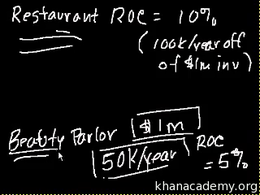 Restaurant ROC = 10%
(100k/year off
of $1m inv)
Beauty Parlor $1m
50k/year ROC
= 5%
khanacademy.org